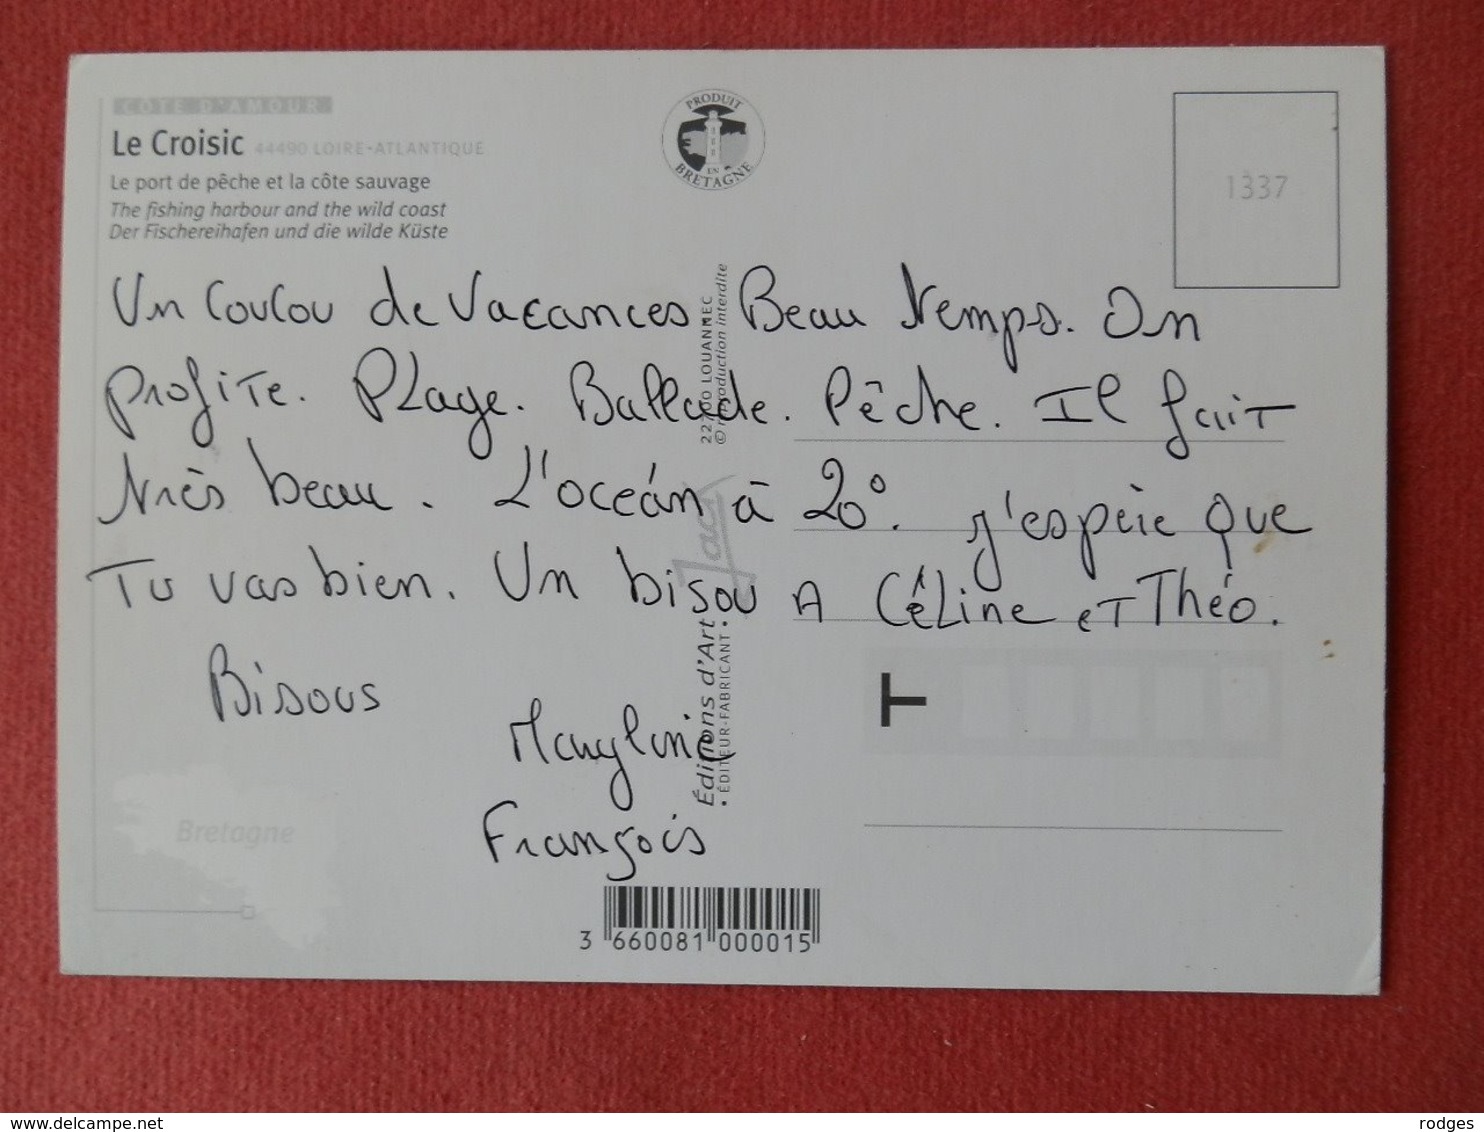 CÔTE D'AMOUR
Le Croisic 44490 LOIRE-ATLANTIQUE
Le port de pêche et la côte sauvage
The fishing harbour and the wild coast
Der Fischereihafen und die wilde Küste
PRODUIT
EN
BRETAGNE
1337
Un Coucou de Vacances. Beau Temps. On
profite. Plage. Ballade. Pêche. Il fait
Très beau. L'oceán à 20°. j'espère que
Tu vas bien. Un bisou A Céline et Théo.
Bisous
Maryline
François
22700 LOUANNEC
© reproduction interdite
Jack
Éditions d'Art
• ÉDITEUR-FABRICANT •
T
Bretagne
3 660081 000015
delcampe.net
rodges